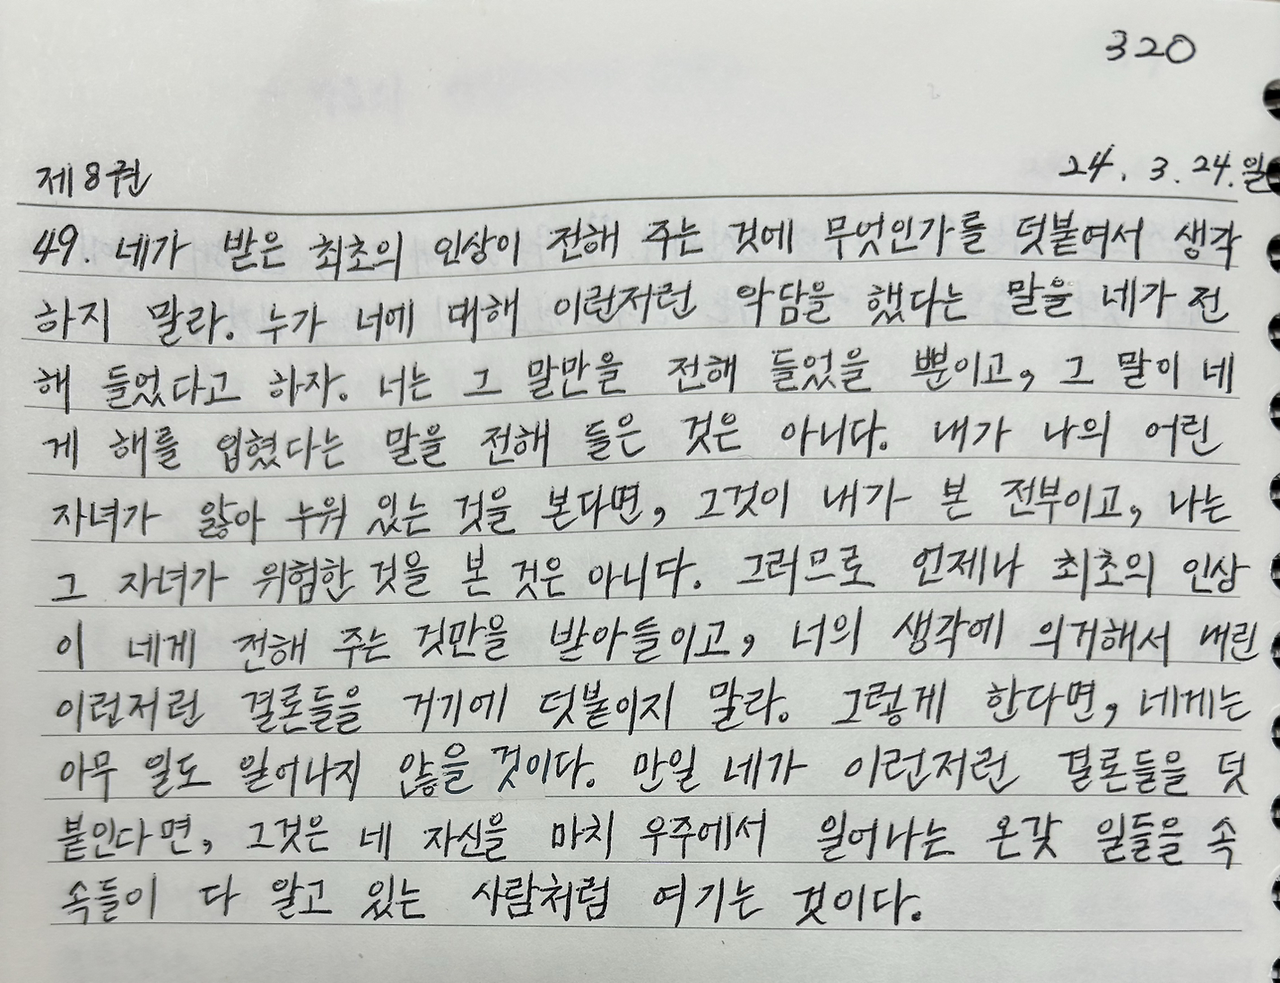 320
제8권 24. 3. 24. 일
49. 네가 받은 최초의 인상이 전해 주는 것에 무엇인가를 덧붙여서 생각
하지 말라. 누가 너에 대해 이런저런 악담을 했다는 말을 네가 전
해 들었다고 하자. 너는 그 말만을 전해 들었을 뿐이고, 그 말이 네
게 해를 입혔다는 말을 전해 들은 것은 아니다. 내가 나의 어린
자녀가 앓아 누워 있는 것을 본다면, 그것이 내가 본 전부이고, 나는
그 자녀가 위험한 것을 본 것은 아니다. 그러므로 언제나 최초의 인상
이 네게 전해 주는 것만을 받아들이고, 너의 생각에 의거해서 내린
이런저런 결론들을 거기에 덧붙이지 말라. 그렇게 한다면, 네게는
아무 일도 일어나지 않을 것이다. 만일 네가 이런저런 결론들을 덧
붙인다면, 그것은 네 자신을 마치 우주에서 일어나는 온갖 일들을 속
속들이 다 알고 있는 사람처럼 여기는 것이다.